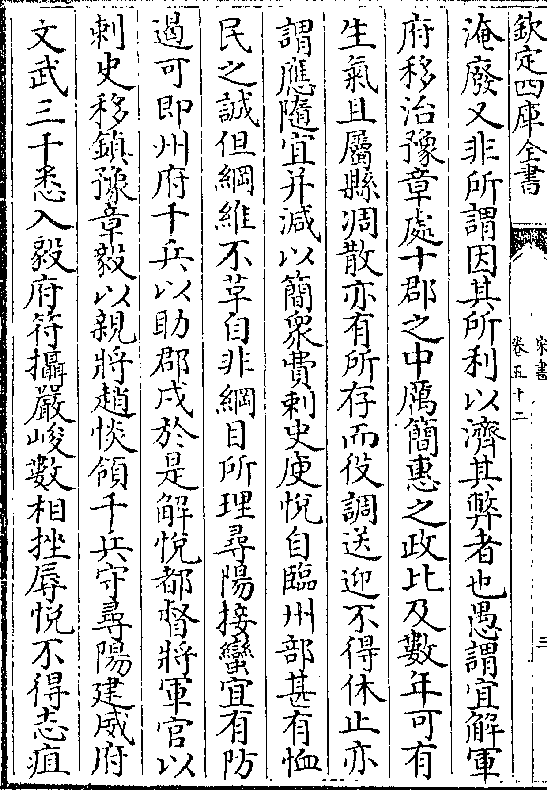 欽定四庫全書
宋書
卷五十二
三
淹廢又非所謂因其所利以濟其弊者也愚謂宜解軍
府移治豫章處十郡之中厲簡惠之政比及數年可有
生氣且屬縣凋散亦有所存而役調送迎不得休止亦
謂應隨宜并減以簡衆費刺史庾悅自臨州部甚有恤
民之誠但綱維不革自非綱目所理尋陽接蠻宜有防
遏可即州府千兵以助郡戍於是解悅都督將軍官以
刺史移鎮豫章毅以親將趙恢領千兵守尋陽建威府
文武三千悉入毅府符攝嚴峻數相挫辱悅不得志疽